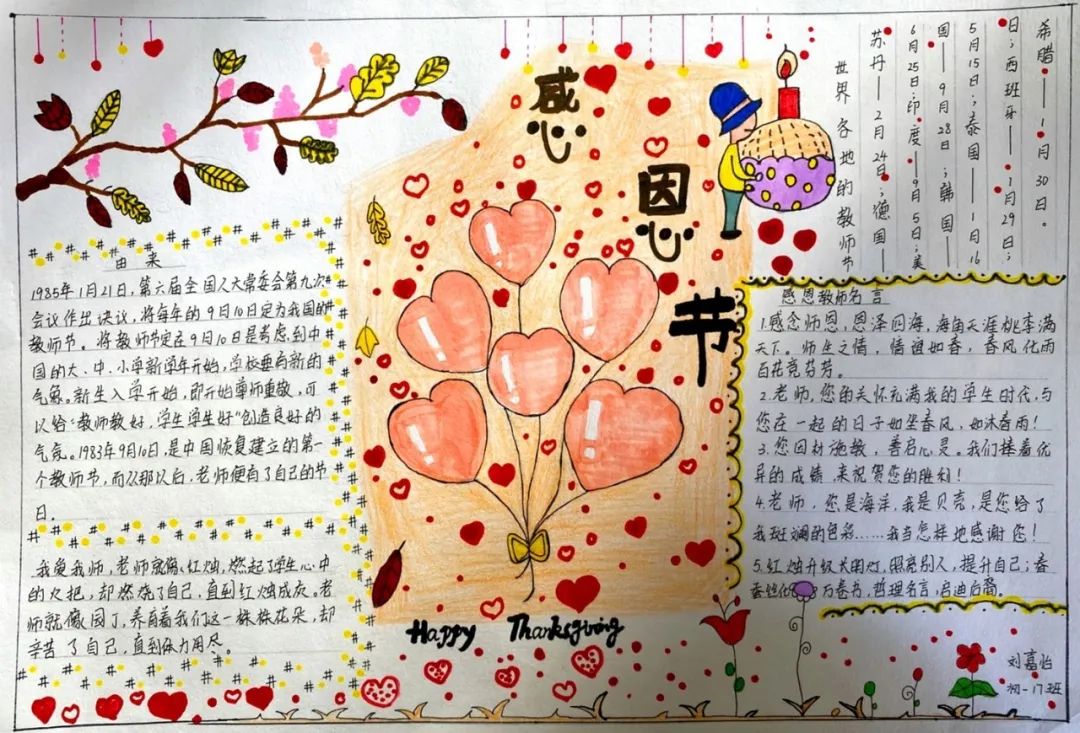 感
恩
节
Happy Thanksgiving
由来
1985年1月21日,第六届全国人大常委会第九次
会议作出决议,将每年的9月10日定为我国的
教师节。将教师节定在9月10日是考虑到中
国的大、中、小学新学年开始,学校要有新的
气象。新生入学开始,即开始尊师重教,可
以给"教师教好,学生学生好"创造良好的
气氛。1983年9月10日,是中国恢复建立的第一
个教师节,而从那以后,老师便有了自己的节
日。
我爱我师,老师就像、红烛,燃起了学生心中
的火把,却燃烧了自己,直到红烛成灰。老
师就像园丁,养育着我们这一株株花朵,却
辛苦了自己,直到体力用尽。
世界各地的教师节
苏丹——2月24日;德国——
6月25日;印度——9月5日;美
国——9月28日;韩国——
5月15日;泰国——1月16
日;西班牙——1月29日;
希腊——1月30日。
感恩教师名言
1.感念师恩,恩泽四海,海角天涯桃李满
天下。师生之情,情谊如春,春风化雨
百花竞芬芳。
2.老师,您的关怀充满我的学生时代,与
您在一起的日子如坐春风,如沐春雨!
3.您因材施教,善启心灵。我们捧着优
异的成绩,来祝贺您的胜利!
4.老师,您是海洋,我是贝壳,是您给了
我斑斓的色彩……我当怎样地感谢您!
5.红烛升级长明灯,照亮别人,提升自己;春
蚕 万卷书,哲理名言,启迪后裔。
刘嘉怡
初一17班